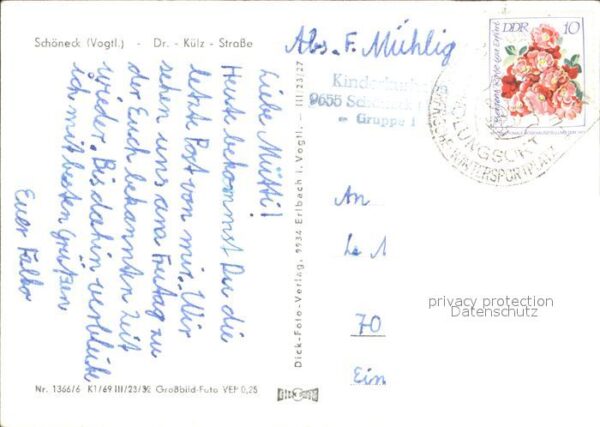 Schöneck (Vogtl.) - Dr.-Külz-Straße
Abs. F. Mühlig
Kinderkurheim
9655 Schöneck
- Gruppe 1
DDR 10
ERHOLUNGSORT
WINTERSPORTPLATZ
Liebe Mutti!
Heute bekommst Du die
letzte Post von mir. Wir
sehen uns am Freitag zu
der Euch bekannten Zeit
wieder. Bis dahin verbleibe
ich mit besten Grüßen
Euer Falko
Dick-Foto-Verlag, 9934 Erlbach i. Vogtl. - III/23/27
An
70
Ein
privacy protection
Datenschutz
Nr. 1366/6 K1/69 III/23/32 Großbild-Foto VEP 0,25